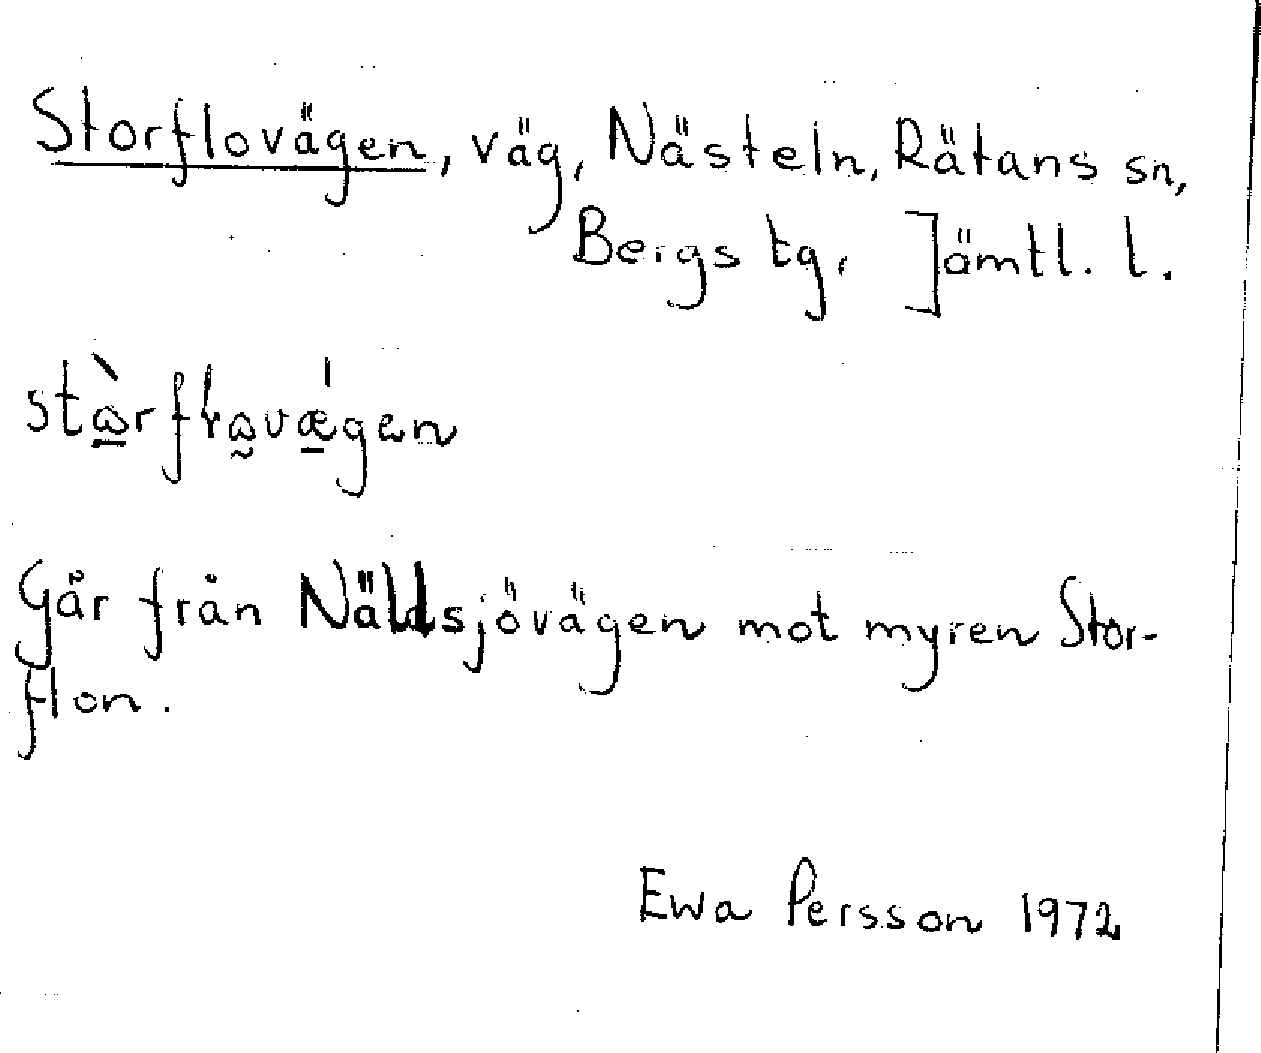 Storflovägen, väg, Nästeln, Rätans sn,
Bergs tg, Jämtl. l.
Går från Näldsjövägen mot myren Stor-
flon.
Ewa Persson 1972